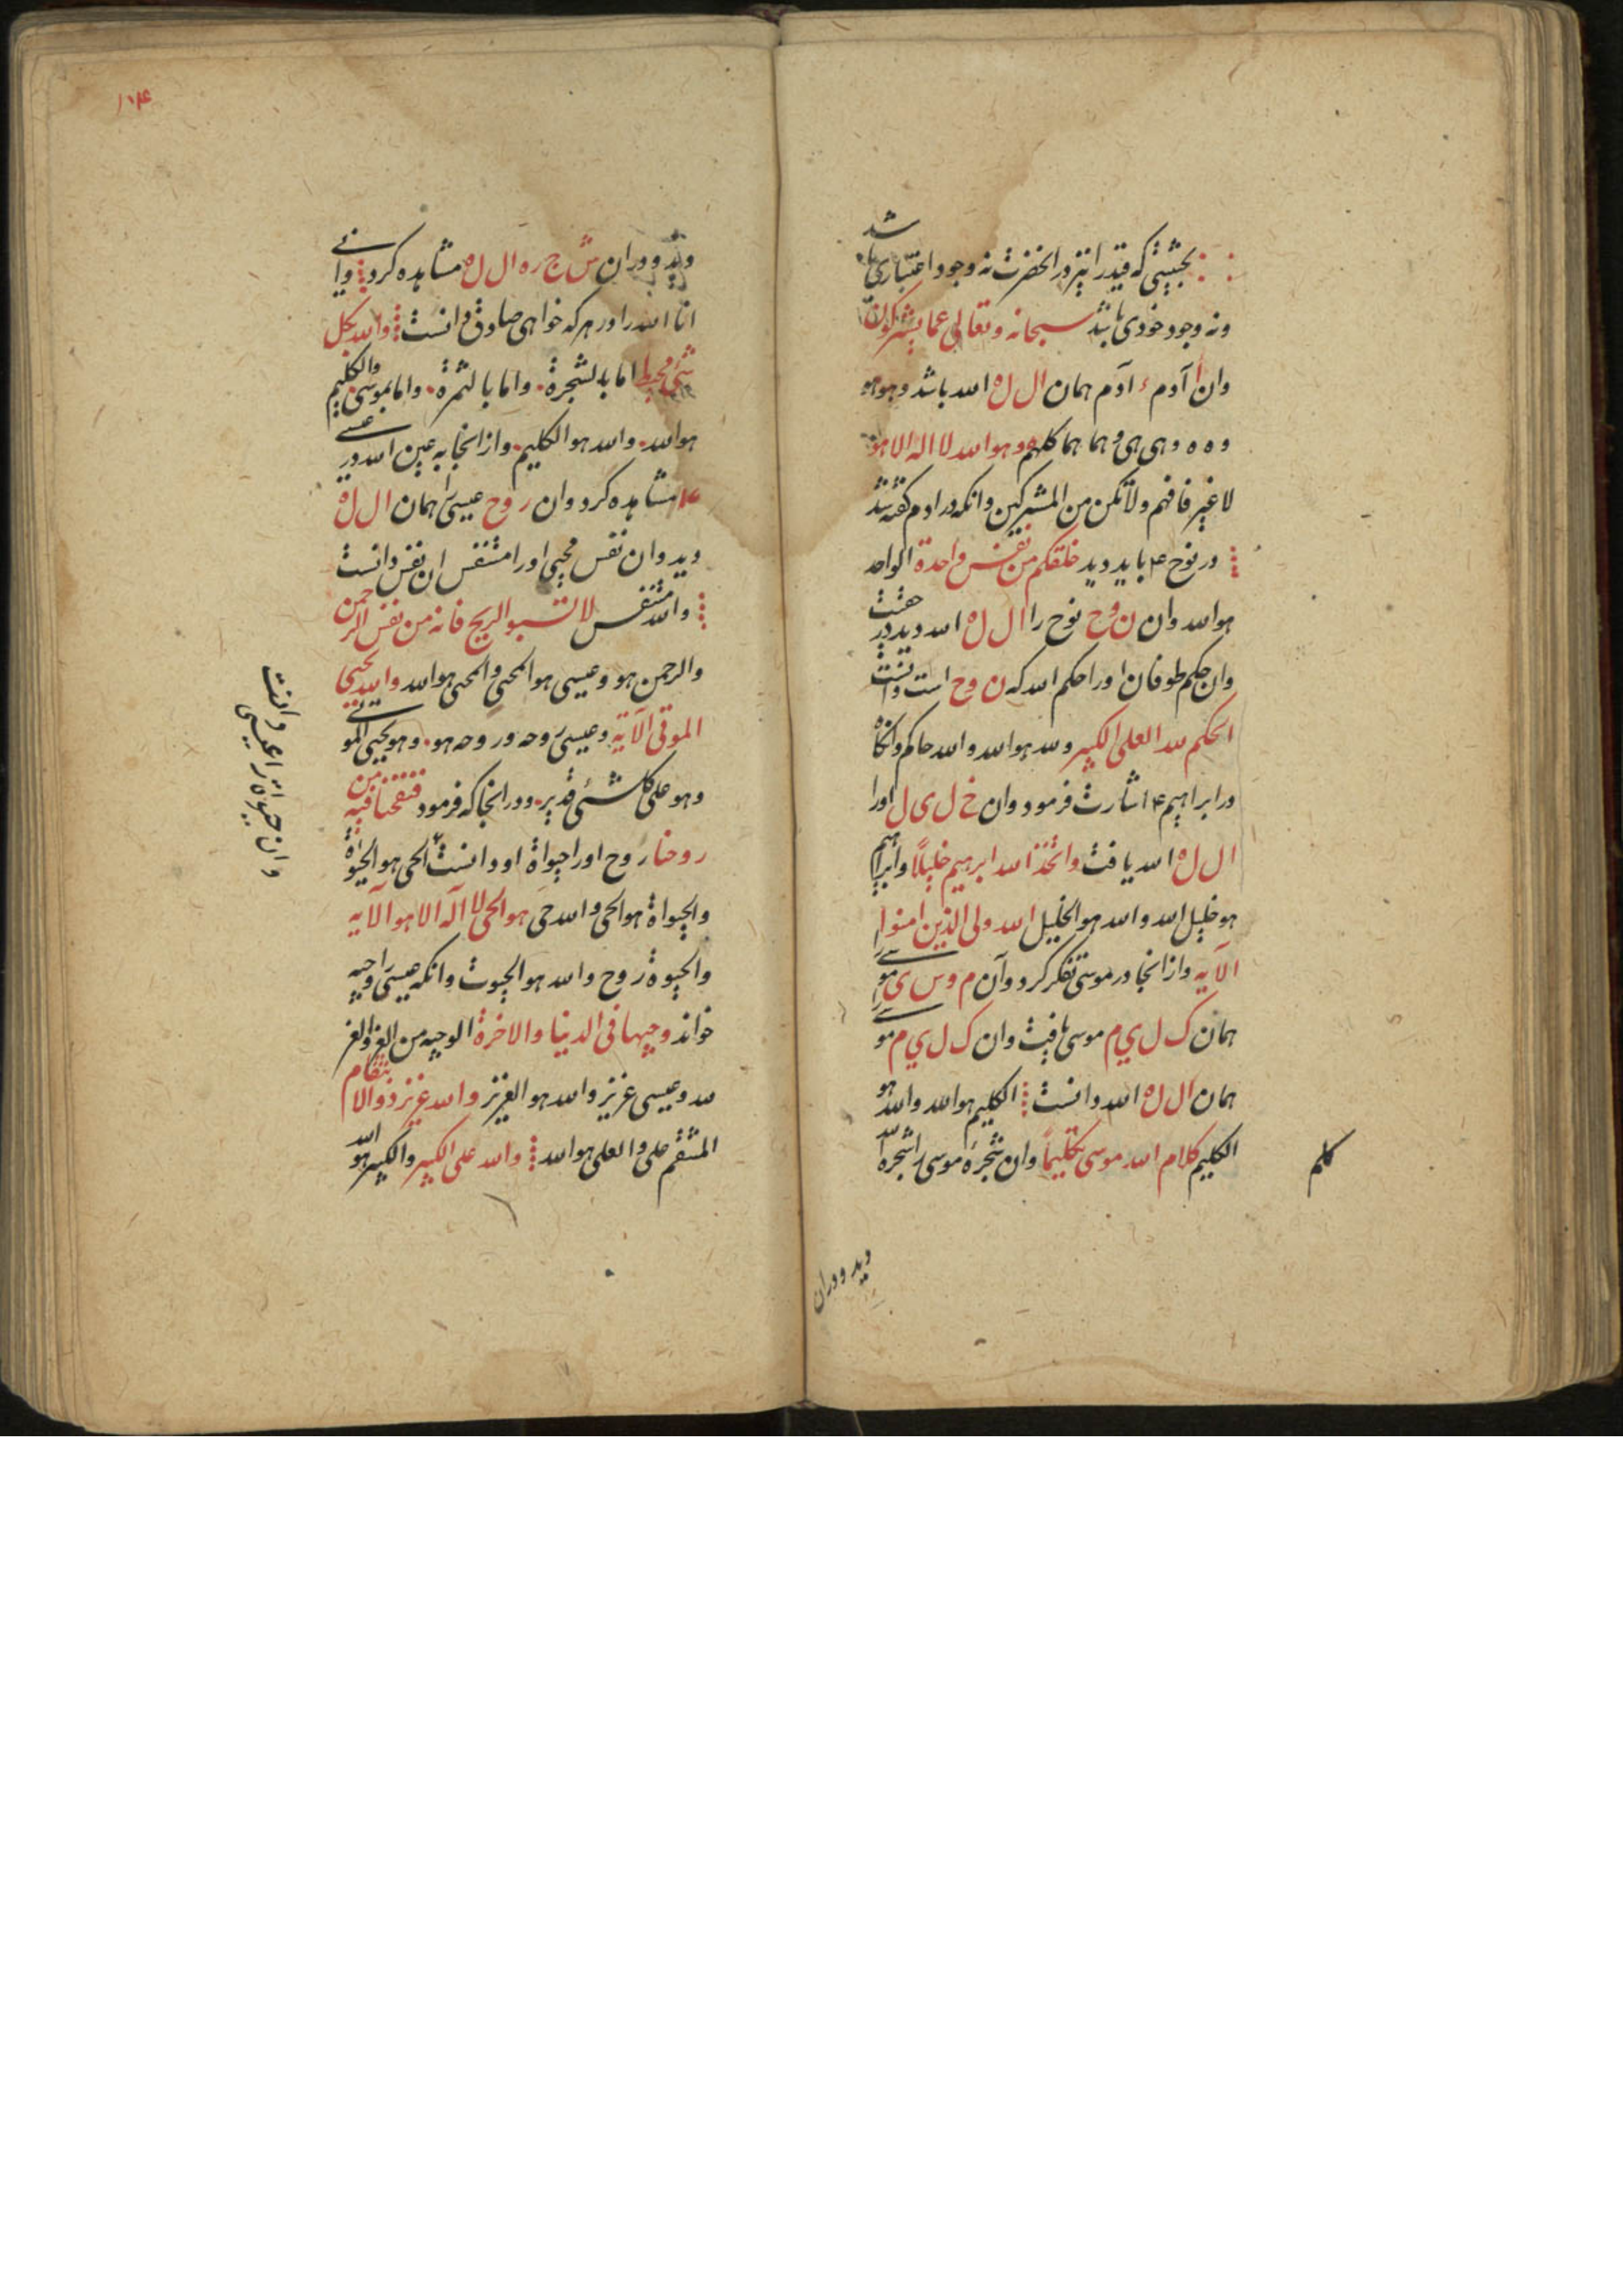 بحیثیتی که قید را نیز در انحضرت نه وجود اعتباری باشد
ونه وجود خودی باشد سبحانه وتعالی عما یشرکون
وان آ آدم ء آدم همان ال ل ه الله باشد وهو هو
و ه ه وهی هی وهما هما کلهم وهو الله لا اله الا هو
لا غیر فافهم ولا تکن من المشرکین وانکه در ادم کفته شد
در نوح ۴ باید دید خلقکم من نفس واحدة الواحد
هو الله وان ن وح نوح را ال ل ه الله دید در حقیقت
وان حکم طوفان اورا حکم الله که ن وح است دانست
الحکم لله العلی الکبیر ولله هو الله والله حاکم وانکاه
در ابراهیم ۴ اشارت فرمود وان خ ل ی ل اورا
ال ل ه الله یافت واتخذ الله ابرهیم خلیلاً وابراهیم
هو خلیل الله والله هو الخلیل الله ولی الذین امنوا
الآیه وازانجا در موسی تفکر کرد وآن م وس ی موسی را
همان ک ل ی م موسی یافت وان ک ل ی م موسی را
همان ال ل ه الله دانست الکلیم هو الله والله هو
الکلیم کلام الله موسی تکلیماً وان شجرهٔ موسی را شجره الله
کلم
دید ودران
۱۰۴
دید ودران ش ج ره ال ل ه مشاهده کرد وانی
انا الله را در هر که خواهی صادق دانست والله بکل
شئ محیط اما بالشجرة واما بالثمرة واما بموسی والکلیم
هو الله والله هو الکلیم وازانجا به عین الله در عیسی
۴ مشاهده کرد وان روح عیسی را همان ال ل ه
دید وان نفس محیی اورا متنفس ان نفس دانست
والله متنفس لا تسبو الریح فانه من نفس الرحمن
والرحمن هو وعیسی هو المحیی والمحیی هو الله والله یحیی
الموتی الآیة وعیسی روحه وروحه هو وهو یحیی الموتی
وهو علی کل شئ قدیر ودرانجا که فرمود فنفخنا فیه من
روحنا روح اورا حیواة او دانست الحی هو الحیوة
والحیواة هو الحی والله حی هو الحی لا آله الا هو الآیه
والحیوة روح والله هو الحیوت وانکه عیسی را وجیه
خواند وجیها فی الدنیا والاخرة الوجیه من العز والعز
لله وعیسی عزیز والله هو العزیز والله عزیز ذو الانتقام
المنتقم علی والعلی هو الله والله علی الکبیر والکبیر هو الله
وان حیواة را عیسی دانست